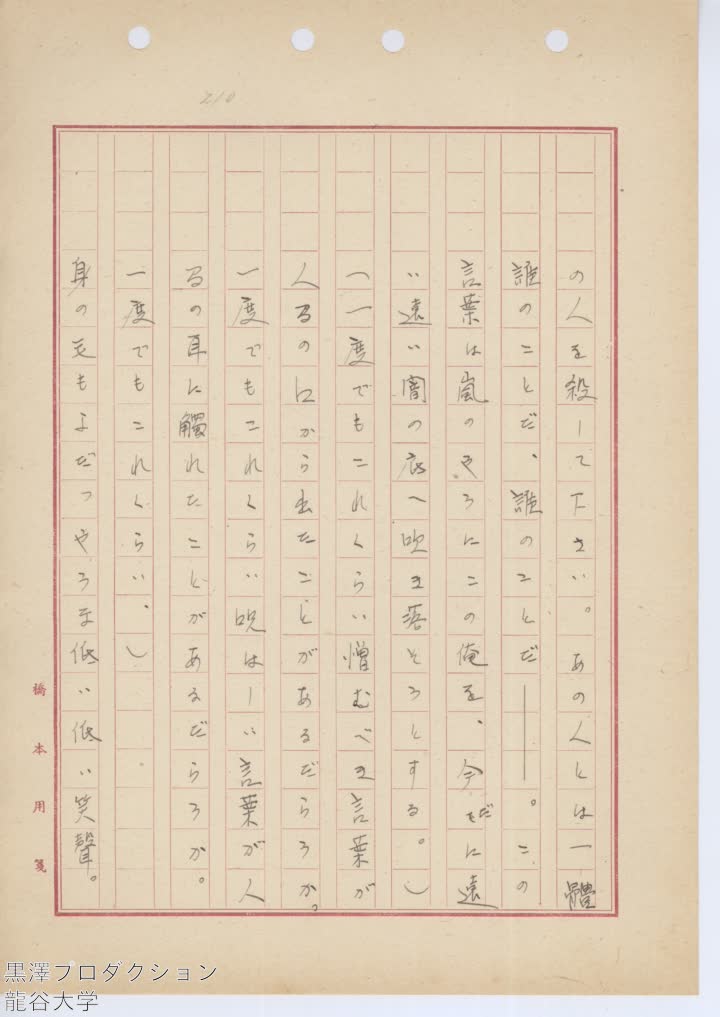 210
の人を殺して下さい。あの人とは一體
誰のことだ、誰のことだ――。この
言葉は嵐のやうにこの俺を、今だに遠
い遠い闇の底へ吹き落そうとする。)
(一度でもこれくらい憎むべき言葉が
人るの口から出たことがあるだらうか。
一度でもこれくらい呪はしい言葉が人
るの耳に觸れたことがあるだらうか。
一度でもこれくらい、)
身の毛もよだつやうな低い低い笑聲。
橋本用箋
黒澤プロダクション
龍谷大学